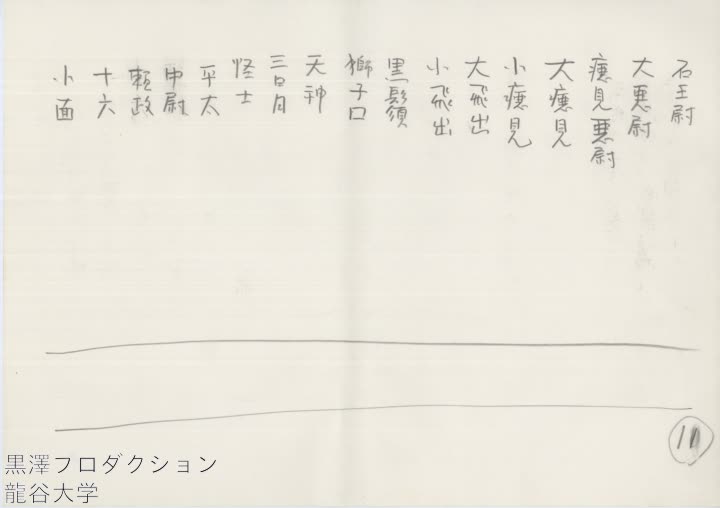 石王尉
大悪尉
癋見悪尉
大癋見
小癋見
大飛出
小飛出
黒髭須
獅子口
天神
三日月
怪士
平太
中尉
頼政
十六
小面
11
黒澤プロダクション
龍谷大学